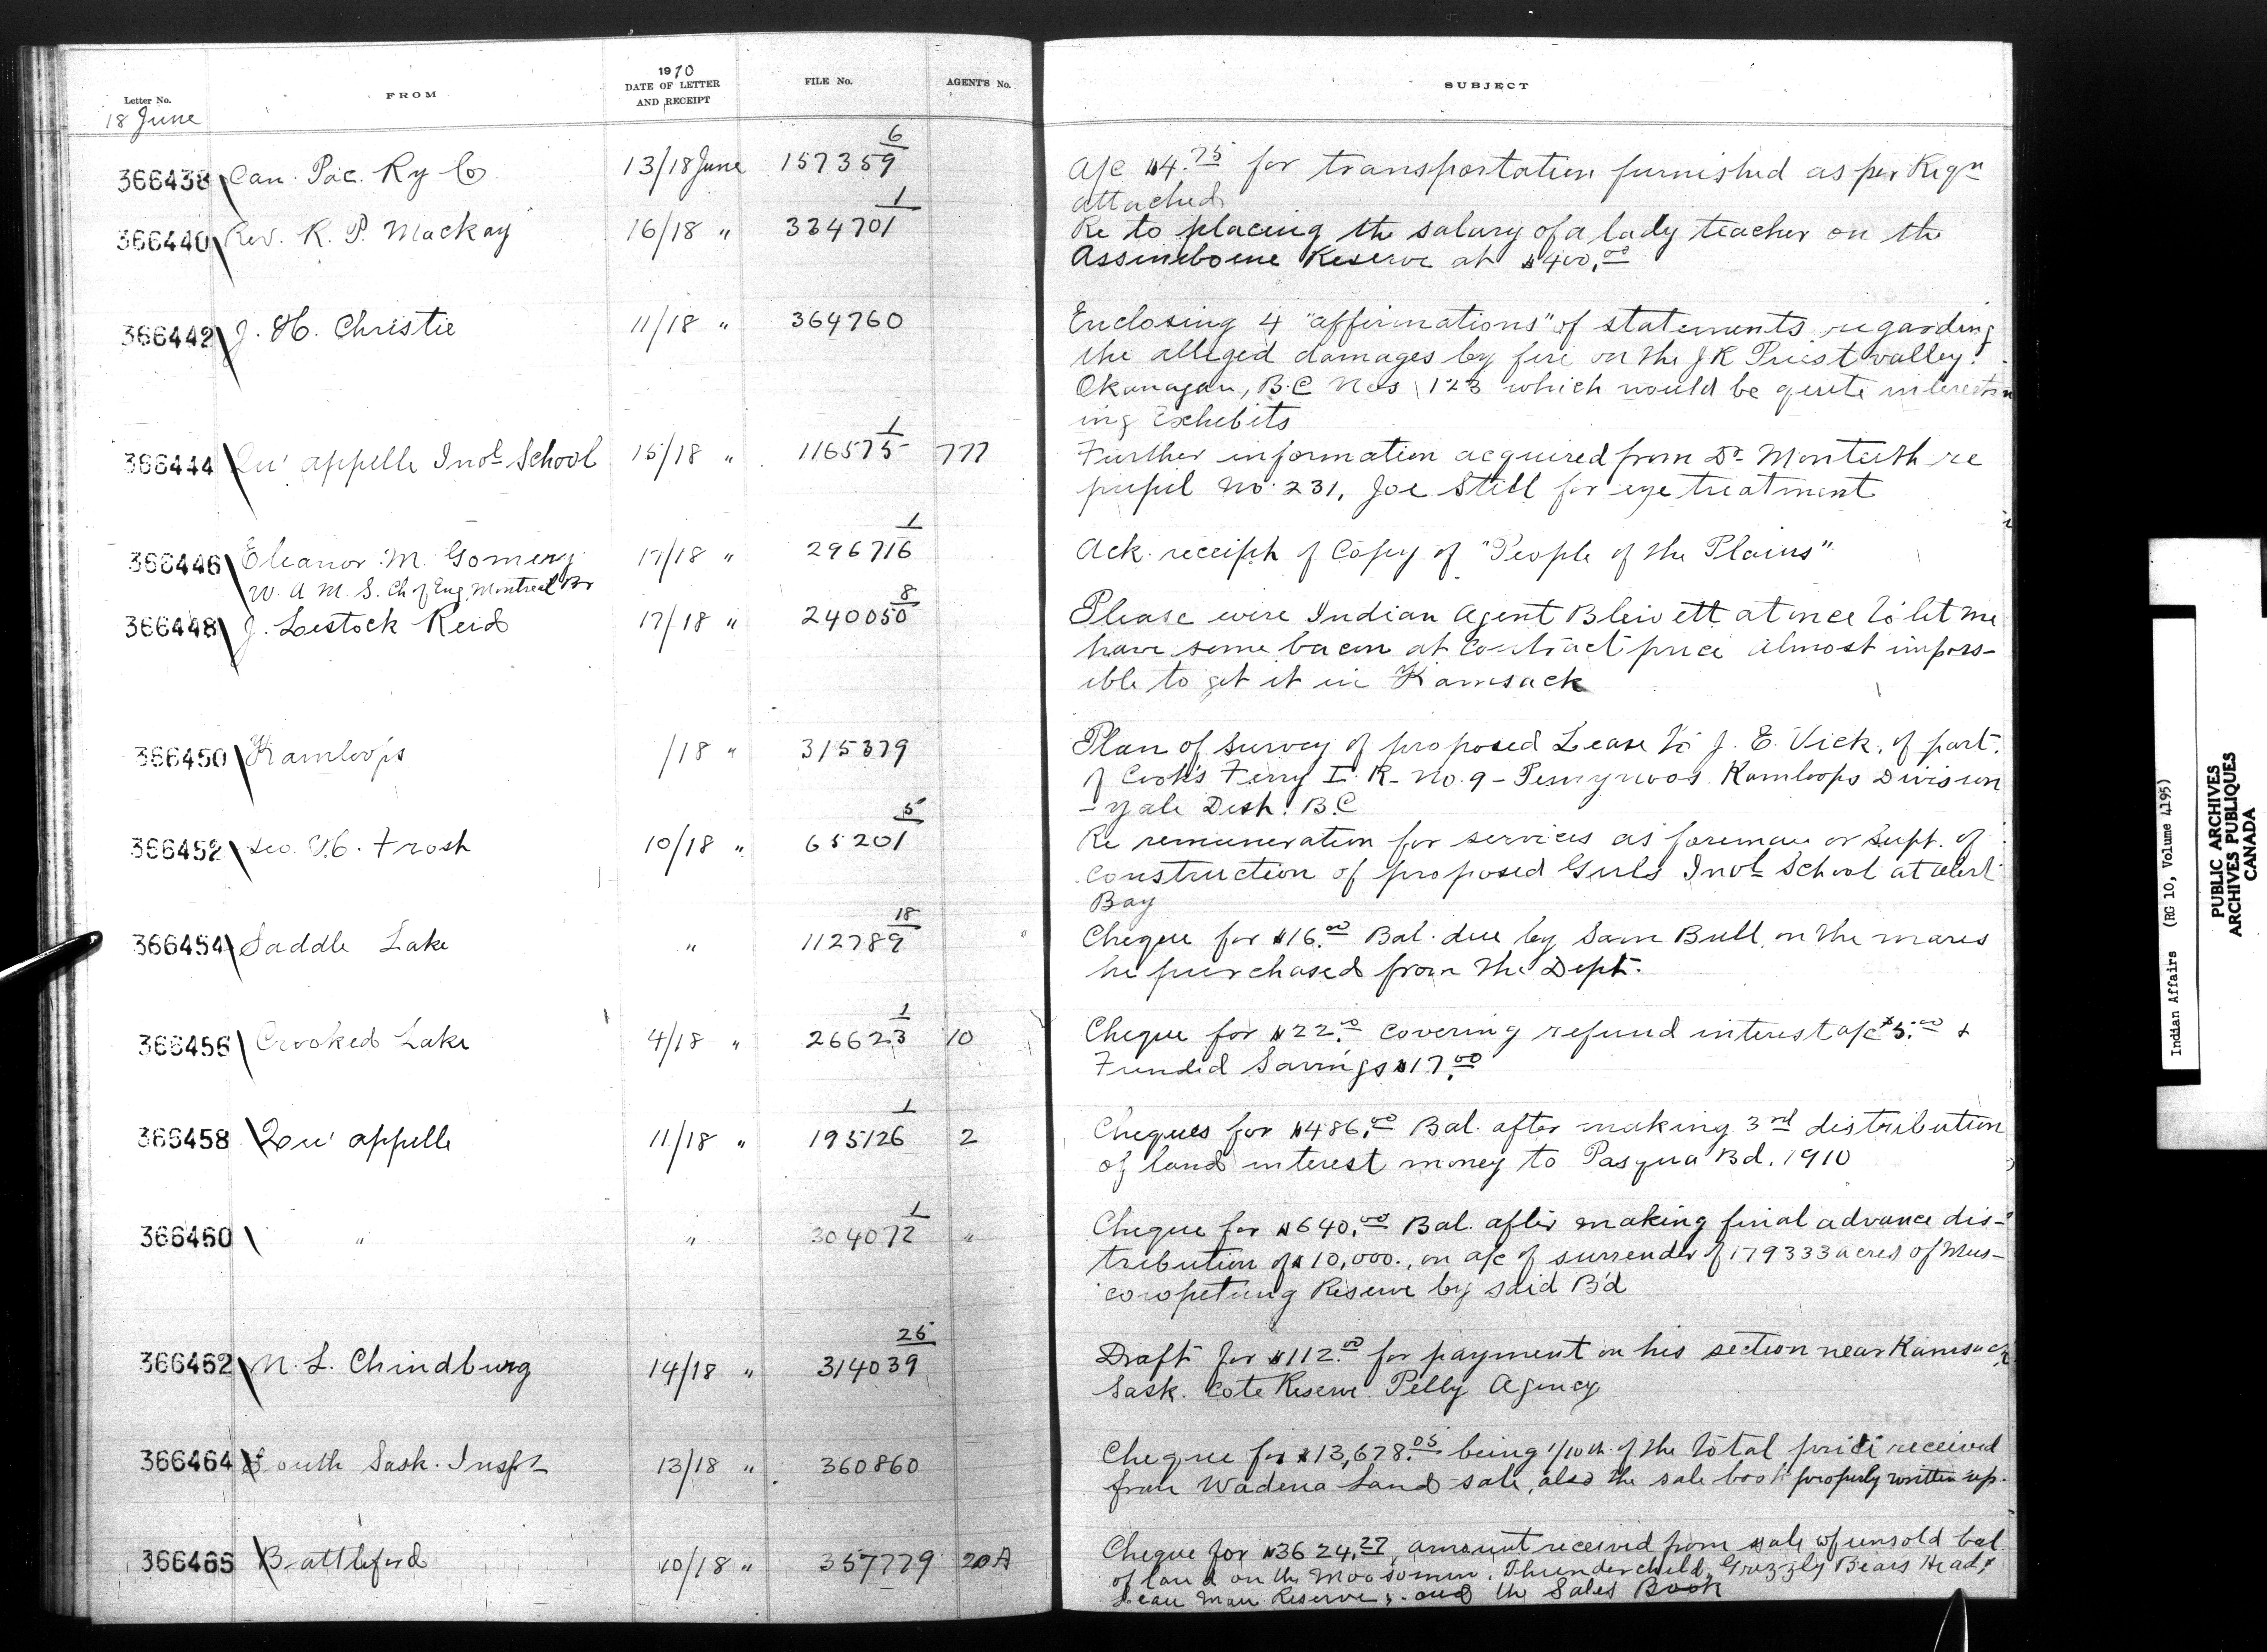 1910
Letter No. FROM DATE OF LETTER AND RECEIPT FILE No. AGENT'S No. SUBJECT
18 June
366438 Can. Pac. Ry Co 13/18 June 157359 6 A/c $4.75 for transportation furnished as per Reqn
attached
366440 Rev. R. P. Mackay 16/18 " 334701 1 Re to placing the salary of a lady teacher on the
Assineboine Reserve at $400.00
366442 J. H. Christie 11/18 " 364760 Enclosing 4 "affirmations" of statements regarding
the alleged damages by fire on the J R Priest valley
Okanagan, B.C Nos 123 which would be quite interestin
ing Exhibits
366444 Qu'appelle Indl School 15/18 " 116575 1 777 Further information acquired from Dr Monteith re
pupil No. 231, Joe Still for eye treatment
366446 Eleanor M. Gomery 17/18 " 296716 1 Ack. receipt of Copy of "People of the Plains"
W. A. M. S. Ch of Eng. Montreal Br
366448 J. Lestock Reid 17/18 " 240050 8 Please wire Indian Agent Blewett at once to let me
have some bacon at contract price almost imposs-
ible to get it in Kamsack
366450 Kamloops /18 " 315379 Plan of survey of proposed Lease to J. E. Vick, of part
of Cook's Ferry I. R. No. 9 - Pemynoos. Kamloops Division
- Yale Dist. B.C
366452 Geo. H. Frost 10/18 " 65201 5 Re remuneration for services as foreman or Supt. of
construction of proposed Girls Indl School at Alert
Bay
366454 Saddle Lake " 112789 18 Cheque for $16.00 Bal. due by Sam Bull, on the mares
he purchased from the Dept.
366456 Crooked Lake 4/18 " 26623 1 10 Cheque for $22.00 covering refund interest a/c $5.00 &
Funded Savings $17.00
366458 Qu'appelle 11/18 " 195126 1 2 Cheques for $486.00 Bal. after making 3rd distribution
of land interest money to Pasqua Bd. 1910
366460 " " 304072 1 " Cheque for $640.00 Bal. after making final advance dis-
tribution of $10,000., on a/c of surrender of 179333 acres of Mus-
cowpetung Reserve by said B'd
366462 N. L. Chindburg 14/18 " 314039 25 Draft for $112.00 for payment on his section near Kamsack
Sask. Cote Reserve. Pelly Agency
366464 South Sask. Inspt 13/18 " 360860 Cheque for $13,678.05 being 1/10th of the total price received
from Wadena Land sale, also the sale book properly written up.
366465 Battleford 10/18 " 357779 20A Cheque for $3624.27, amount received from sale of unsold bal.
of land on the Moosomin, Thunderchild, Grizzly Bears Head, &
Lean Man Reserve; and the Sales Book
Indian Affairs (RG 10, Volume 4195)
PUBLIC ARCHIVES
ARCHIVES PUBLIQUES
CANADA